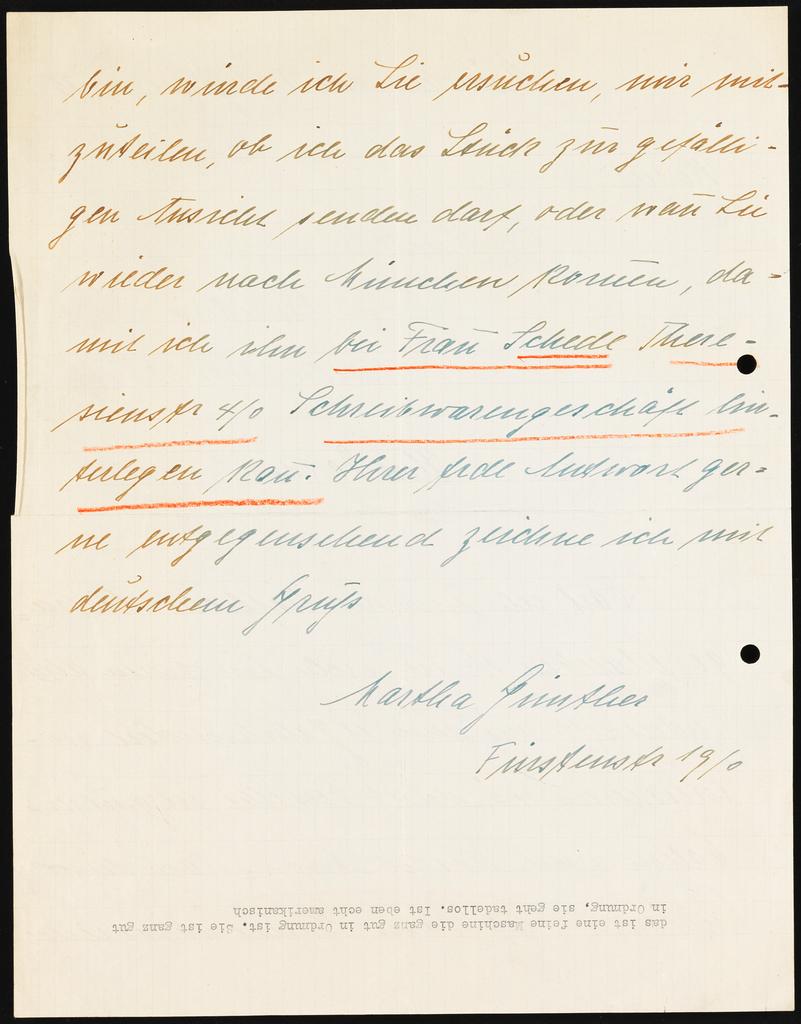 bin, würde ich Sie ersuchen, mir mit-
zuteilen, ob ich das Stück zur gefälli-
gen Ansicht senden darf, oder wan̄ Sie
wieder nach München kom̄en, da-
mit ich ihn bei Frau Schede There-
sienstr 4/0 Schreibwarengeschäft hin-
terlegen kan̄. Ihrer Antwort ger-
ne entgegensehend zeichne ich mit
deutschem Gruß
Martha Günther
Fürstenstr 19/0
das ist eine feine Maschine die ganz gut in Ordnung ist. Sie ist ganz gut
in Ordnung, sie geht tadellos. Ist eben echt amerikanisch